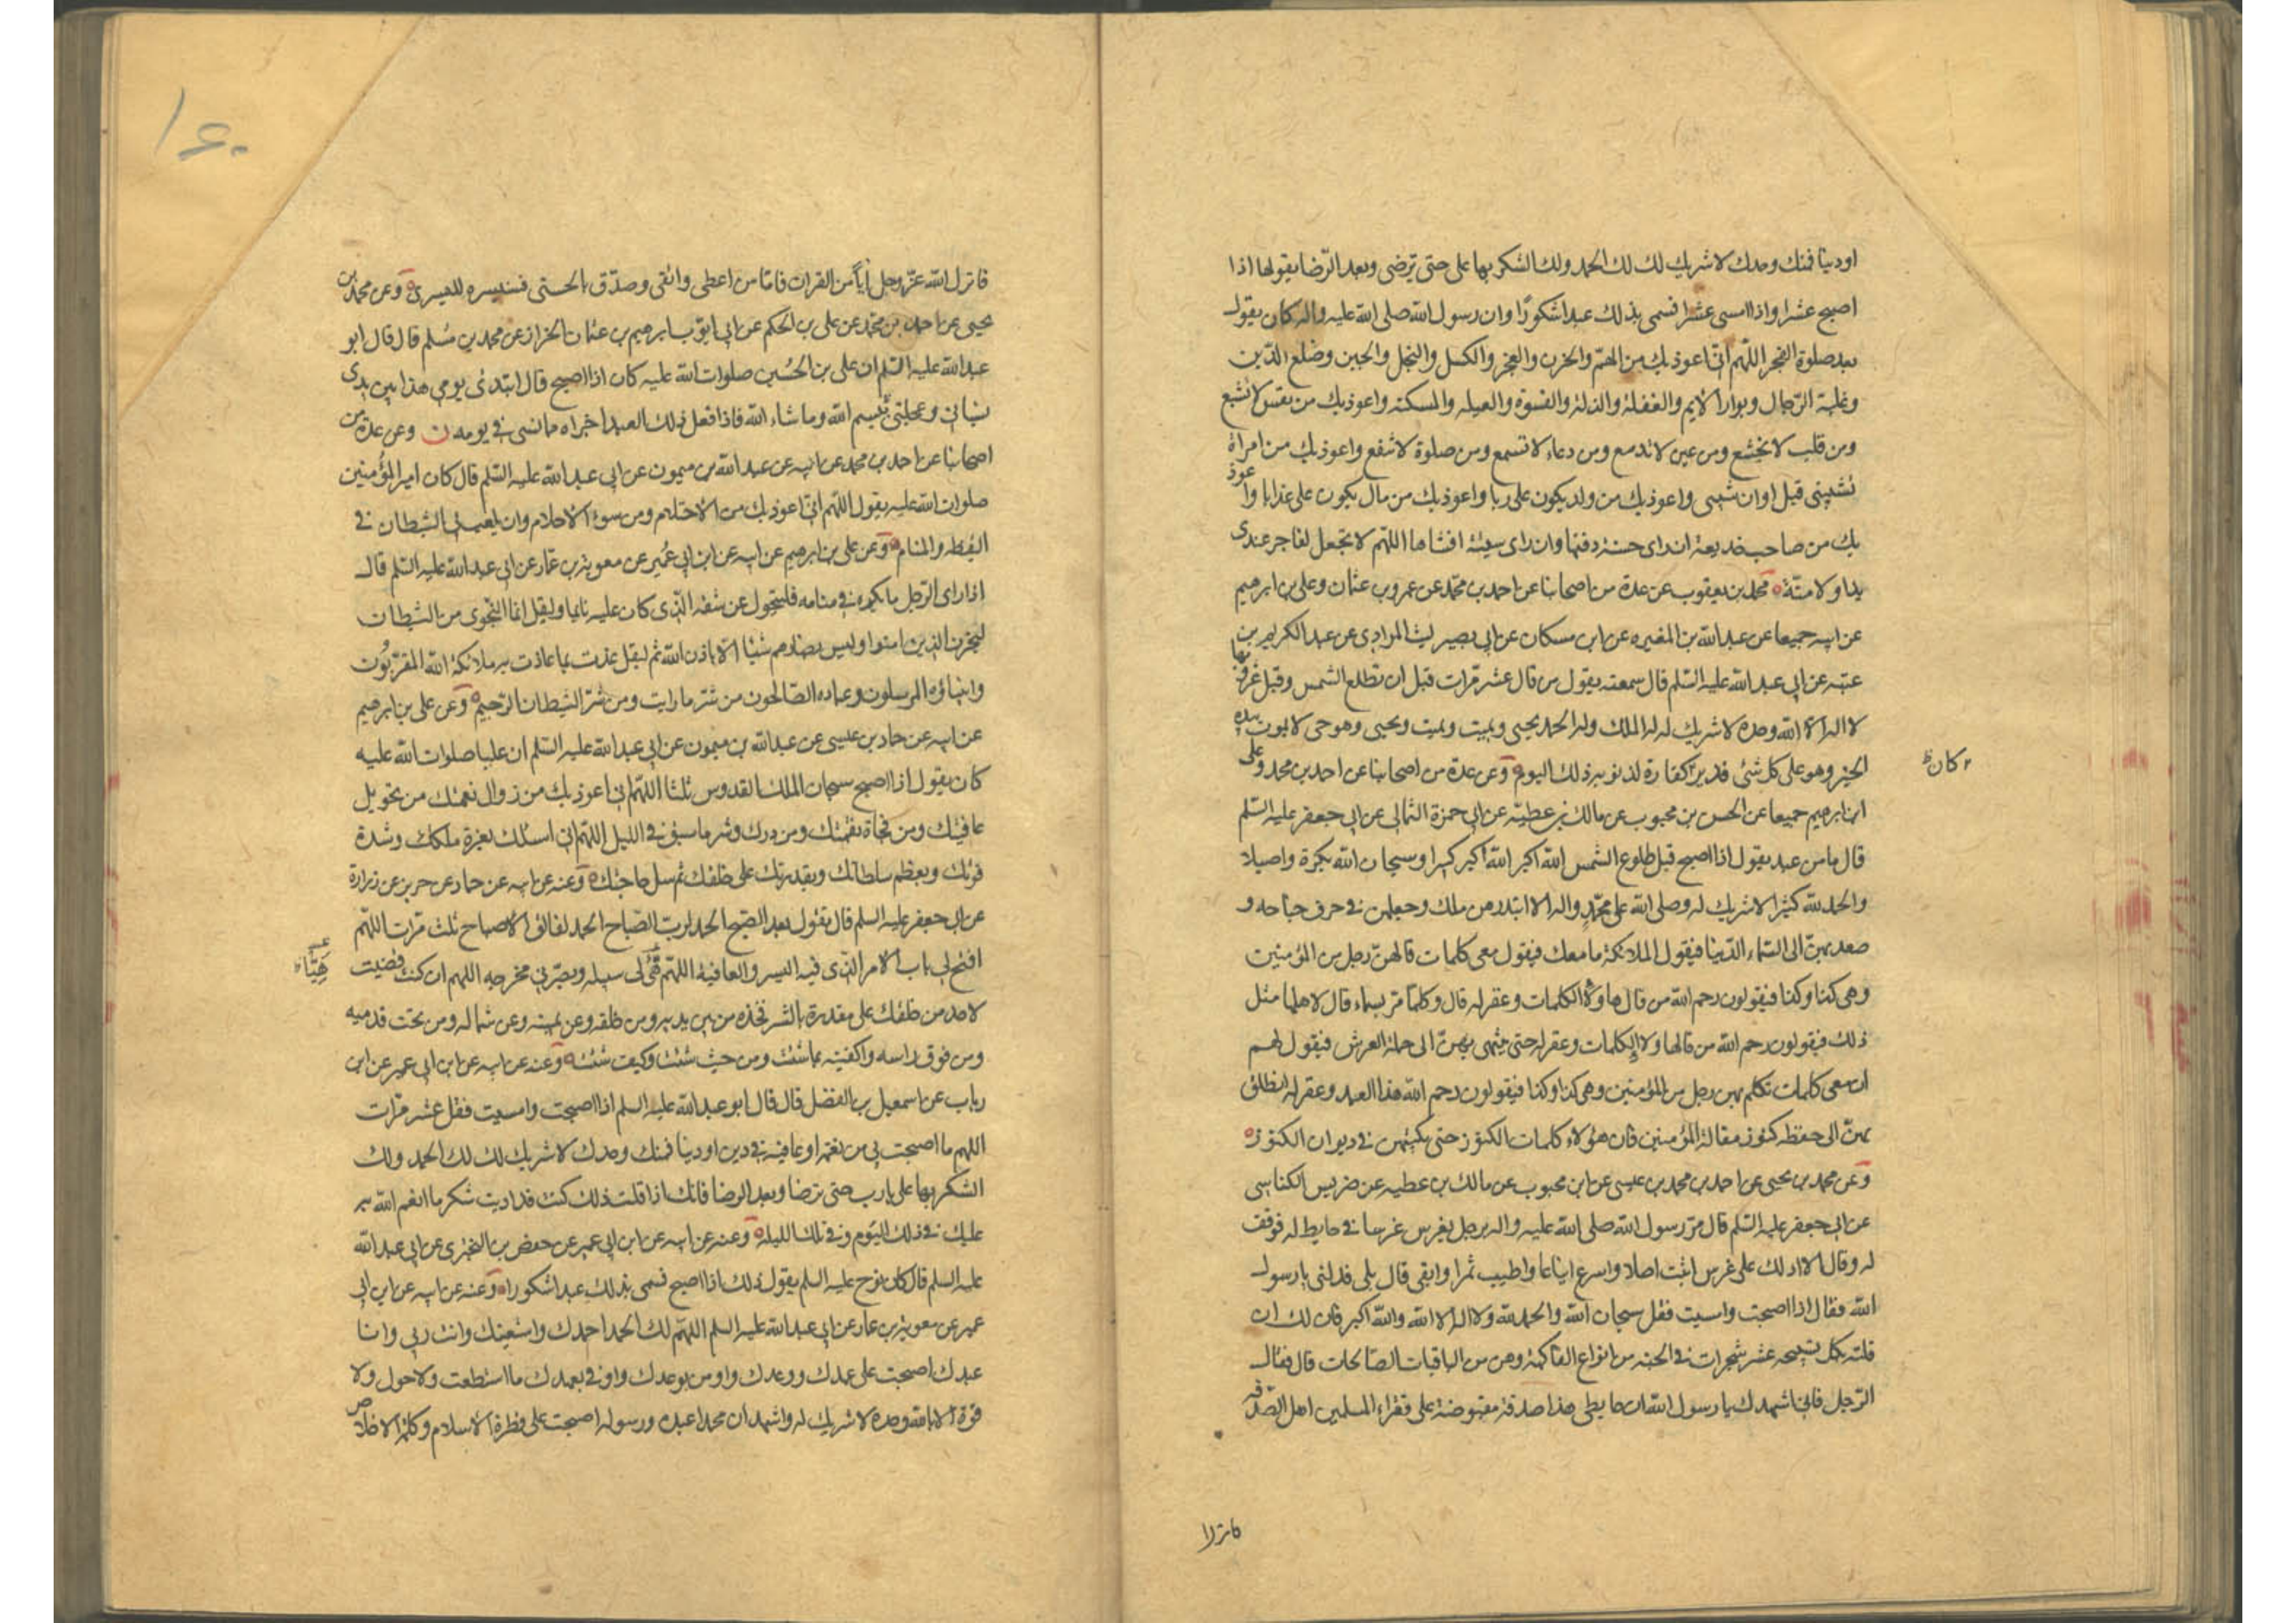 او دنيا فمنك وحدك لا شريك لك لك الحمد ولك الشكر بها على حتى ترضى وبعد الرّضا يقولها اذا
اصبح عشرا واذا امسى عشرا فسمى بذلك عبدا شكورًا وان رسول الله صلى الله عليه واله كان يقول
بعد صلوة الفجر اللهّم انّى اعوذ بك من الهمّ والحزن والعجز والكسل والبخل والجبن وضلع الدّين
وغلبة الرّجال وبوار الايم والغفلة والذلة والقسوة والعيله والمسكنه واعوذ بك من نفس لا تشبع
ومن قلب لا يخشع ومن عين لا تدمع ومن دعاء لا تسمع ومن صلوة لا تنفع واعوذ بك من امراة
تشيبنى قبل اوان شيبى واعوذ بك من ولد يكون على ربا واعوذ بك من مال يكون على عذابا واعوذ
بك من صاحب خديعة ان راى حسنة دفنها وان راى سيئة افشاها اللهّم لا تجعل لفاجر عندى
يدا ولا منّة محمد بن يعقوب عن عدة من اصحابنا عن احمد بن محمّد عن عمرو بن عثمان وعلى بن ابرهيم
عن ابيه جميعا عن عبد الله بن المغيره عن ابن مسكان عن ابى بصير ليث المرادى عن عبد الكريم بن
عتبه عن ابى عبد الله عليه السّلم قال سمعته يقول من قال عشر مرّات قبل ان تطلع الشمس وقبل غروبها
لا اله الا الله وحده لا شريك له له الملك وله الحمد يحيى ويميت ويميت ويحيى وهو حى لا يموت بيده
الخير وهو على كل شئ قدير كفارة لذنوبه ذلك اليوم وعن عدة من اصحابنا عن احمد بن محمد وعلى
كان ظ
ابن ابرهيم جميعا عن الحسن بن محبوب عن مالك بن عطيّه عن ابى حمزة الثمالى عن ابى جعفر عليه السّلم
قال ما من عبد يقول اذا اصبح قبل طلوع الشمس الله اكبر الله اكبر كبيرا وسبحان الله بكرة واصيلا
والحمد لله كثيرا لا شريك له وصلى الله على محمّدٍ واله الا ابتدرهن ملك وجعلهن فى جوف جناحه و
صعد بهنّ الى السّماء الدّنيا فيقول الملائكة ما معك فيقول معى كلمات قالهنّ رجل من المؤمنين
وهى كذا وكذا فيقولون رحم الله من قال هاولاء الكلمات وغفر له قال وكلما مر بسماء قال لاهلها مثل
ذلك فيقولون رحم الله من قال هاولاء الكلمات وغفر له حتى ينتهى بهنّ الى حملة العرش فيقول لهم
ان معى كلمات تكلم بهن رجل من المؤمنين وهى كذا وكذا فيقولون رحم الله هذا العبد وغفر له انطلق
بهنّ الى حفظه كنوز مقالة المؤمنين فان هؤلاء كلمات الكنوز حتى يكتبهن فى ديوان الكنوز
وعن محمد بن يحيى عن احمد بن محمد بن عيسى عن ابن محبوب عن مالك بن عطيه عن ضريس الكناسى
عن ابى جعفر عليه السّلم قال مرّ رسول الله صلى الله عليه واله برجل يغرس غرسا فى حايط له فوقف
له وقال الا ادلك على غرس اثبت اصلا واسرع ايناعا واطيب ثمرا وابقى قال بلى فدلنى يا رسول
الله فقال اذا اصبحت وامسيت فقل سبحان الله والحمد لله ولا اله الا الله والله اكبر فان لك ان
قلته بكل تسبيحه عشر شجرات فى الجنه من انواع الفاكهة وهن من الباقيات الصّالحات قال فقال
الرّجل فانى اشهدك يا رسول الله ان حايطى هذا صدقة مقبوضة على فقراء المسلمين اهل الصّدقه
فانزلا
١۶٠
فانزل الله عزّ وجل آيا من القران فامّا من اعطى واتّقى وصدّق بالحسنى فسنيسره لليسرى وعن محمد بن
يحيى عن احمد بن محمّد عن على بن الحكم عن ابى ايّوب ابرهيم بن عثمان الخزاز عن محمد بن مُسلم قال قال ابو
عبد الله عليه السّلم ان على بن الحُسين صلوات الله عليه كان اذا اصبح قال ابتدئ يومى هذا بين يدى
نسيانى وعجلتى بِبسم الله وما شاء الله فاذا فعل ذلك العبد اجزاه مما نسى فى يومه وعن عدة من
اصحابنا عن احمد بن محمد عن ابيه عن عبد الله بن ميمون عن ابى عبد الله عليه السّلم قال كان امير المؤُمنين
صلوات الله عليه يقول اللهّم انّى اعوذ بك من الاحتلام ومن سوء الاحلام وان يلعب بى الشيطان فى
اليقظه والمنام وعن على بن ابرهيم عن ابيه عن ابن ابى عُمير عن معويه بن عمّار عن ابى عبد الله عليه السّلم قال
اذا راى الرّجل ما يكره فى منامه فليتحول عن شقه الّذى كان عليه نايما وليقل انما النّجوى من الشيطان
ليحزن الذين امنوا وليس بضارهم شيئا الّا باذن الله ثم ليقل عذت بما عاذت به ملائكة الله المقربُون
وانبياؤه المرسلون وعباده الصّالحون من شر ما رايت ومن شرّ الشيطان الرّجيم وعن على بن ابرهيم
عن ابيه عن حماد بن عيسى عن عبد الله بن ميمون عن ابى عبد الله عليه السّلم ان عليا صلوات الله عليه
كان يقول اذا اصبح سبحان الملك القدوس ثلثا اللهّم انى اعوذ بك من زوال نعمتك من تحويل
عافيتك ومن فجاة نقمتك ومن درك وشر ما سبق فى الليل اللهّم انى اسئلك بعزة ملكك وشدة
قوتك وبعظم سلطانك وبقدرتك على خلقك ثم سل حاجتك وعنه عن ابيه عن حماد عن حريز عن زرارة
عن ابى جعفر عليه السلم قال تقول بعد الصّبح الحمد لربّ الصّباح الحمد لفالق الاصباح ثلث مرّات اللهّم
افتح لى باب الامر الّذى فيه اليسر والعافية اللهّم هيّئ لى سبيله وبصّرنى مخرجه اللهم ان كنت قضيت
هَيِّأ
لاحد من خلقك على مقدرة بالشر فخذه من بين يديه ومن خلفه وعن يمينه وعن شماله ومن تحت قدميه
ومن فوق راسه واكفنيه بما شئت ومن حيث شئت وكيف شئت وعنه عن ابيه عن ابن ابى عمير عن ابن
رياب عن اسمعيل بن الفضل قال قال ابو عبد الله عليه السلم اذا اصبحت وامسيت فقل عشر مرّات
اللهم ما اصبحت بى من نعمة او عافية فى دين او دنيا فمنك وحدك لا شريك لك لك الحمد ولك
الشكر بها على يا رب حتى ترضا وبعد الرضا فانك اذا قلت ذلك كنت قد اديت شكر ما انعم الله به
عليك فى ذلك اليَوم وفى تلك الليلة وعنه عن ابيه عن ابن ابى عمير عن حفص بن البخترى عن ابى عبد الله
عليه السلم قال كان نوح عليه السلم يقول ذلك اذا اصبح فسمى بذلك عبدا شكورا وعنه عن ابيه عن ابن ابى
عمير عن معوية بن عمار عن ابى عبد الله عليه السلم اللهّم لك الحمد احمدك واستعينك وانت ربى وانا
عبدك اصبحت على عهدك ووعدك واومن بوعدك واوفى بعهدك ما استطعت ولا حول ولا
قوة الا بالله وحده لا شريك له واشهد ان محمدا عبده ورسوله اصبحت على فطرة الاسلام وكلمة الاخلاص